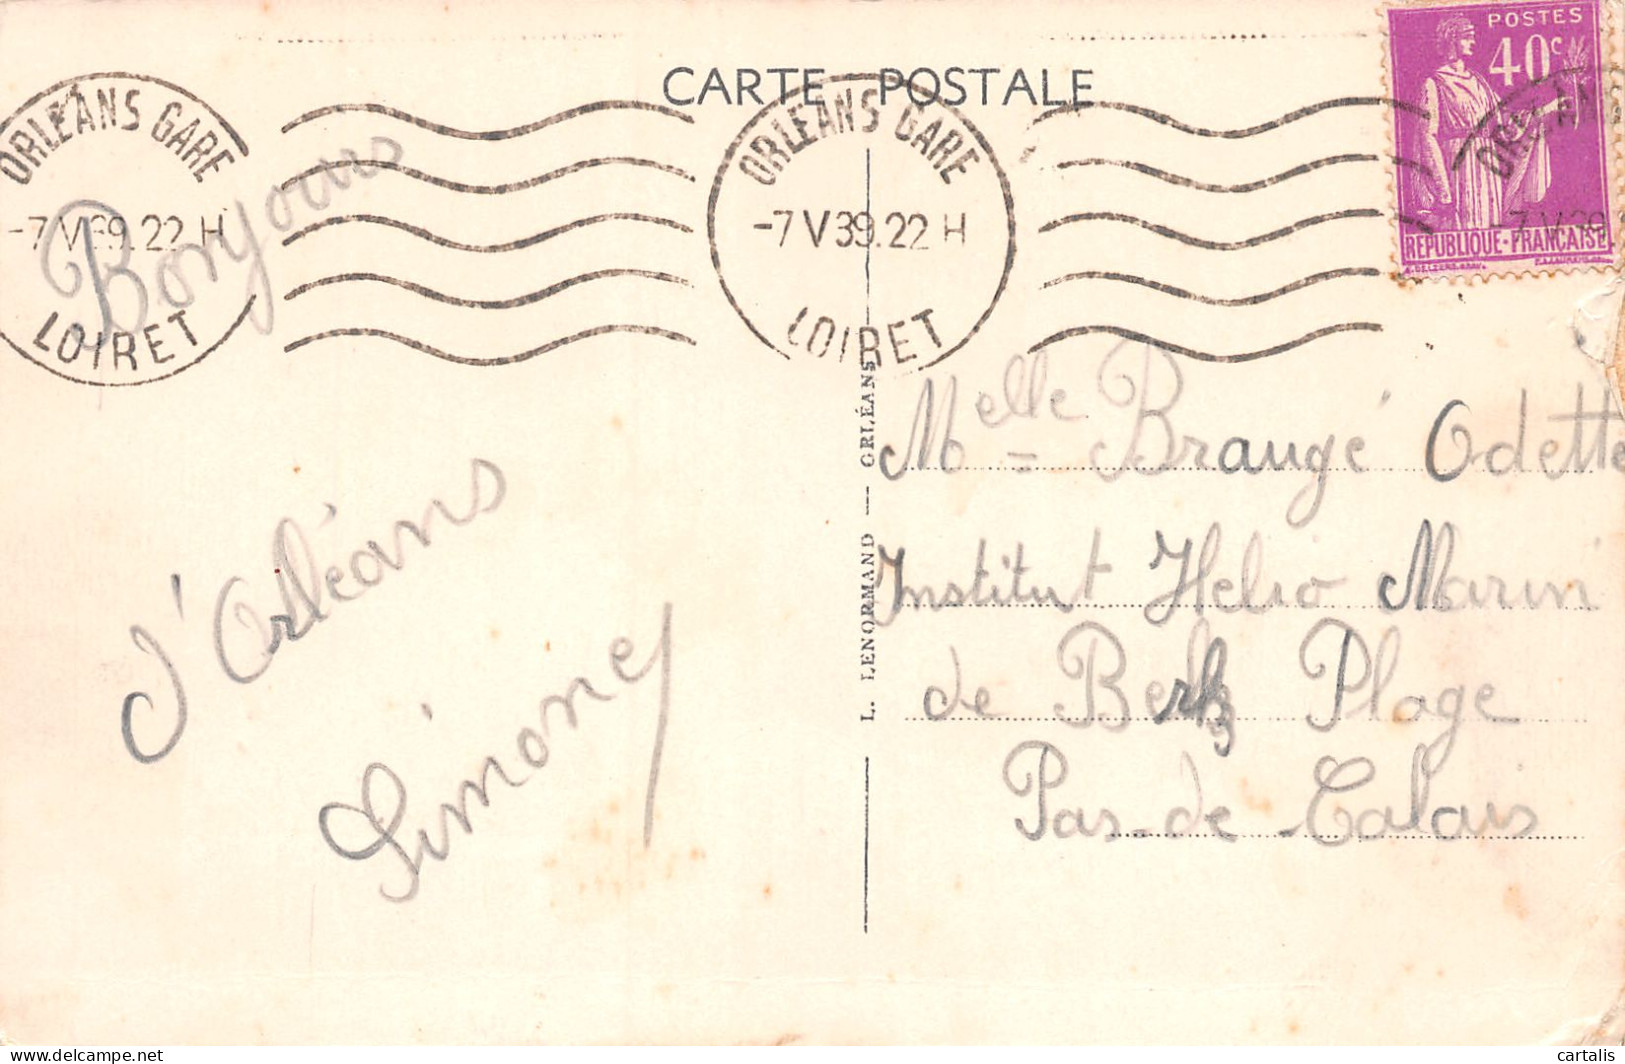 CARTE POSTALE
POSTES
40c
RÉPUBLIQUE-FRANÇAISE
ORLEANS GARE
-7 V 39. 22 H
LOIRET
ORLEANS GARE
-7 V 39. 22 H
LOIRET
ORLEANS
7 V 39
Bonjours
d'Orléans
Simone
L. LENORMAND — ORLÉANS
Melle = Braugé Odette
Institut Helio Marin
de Berk Plage
Pas-de-Calais
delcampe.net
cartalis